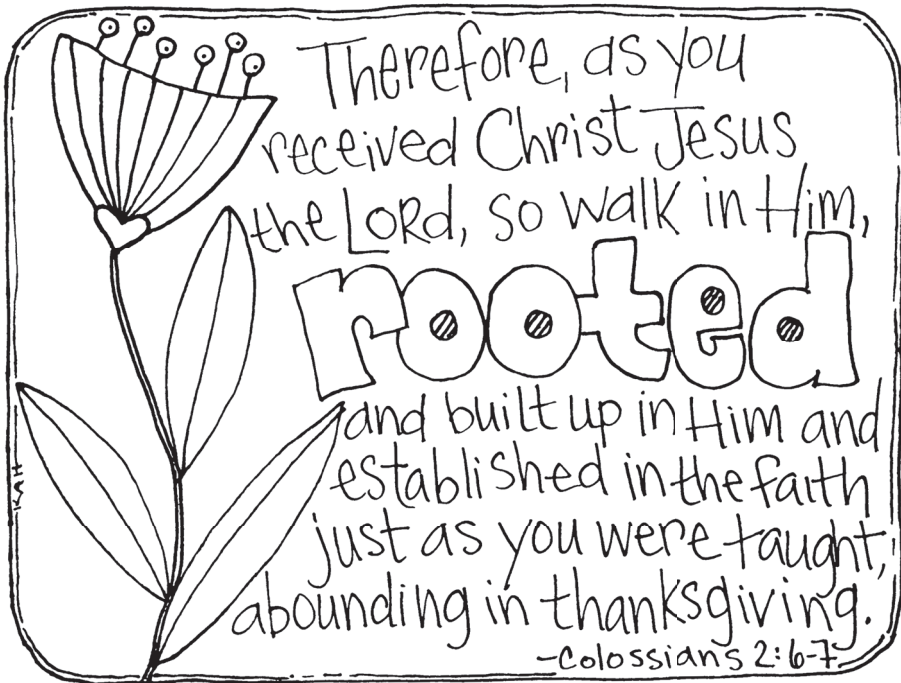 Therefore, as you
received Christ Jesus
the LORD, so walk in Him,
rooted
and built up in Him and
established in the faith
just as you were taught,
abounding in thanksgiving.
-Colossians 2:6-7
KAH